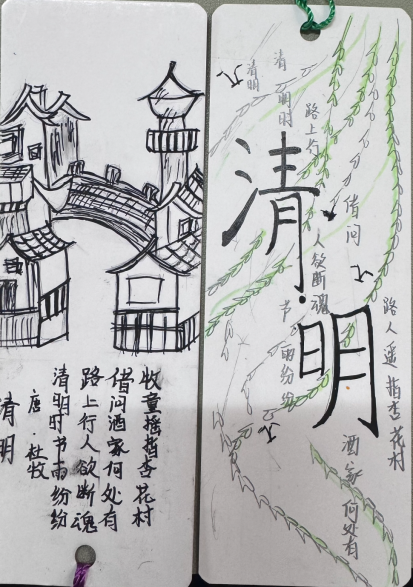 清明
唐 杜牧
清明时节雨纷纷
路上行人欲断魂
借问酒家何处有
牧童摇指杏花村
清明
清明时
节雨纷纷
路上行
人欲断魂
借问
酒家何处有
路人遥指杏花村
清·明